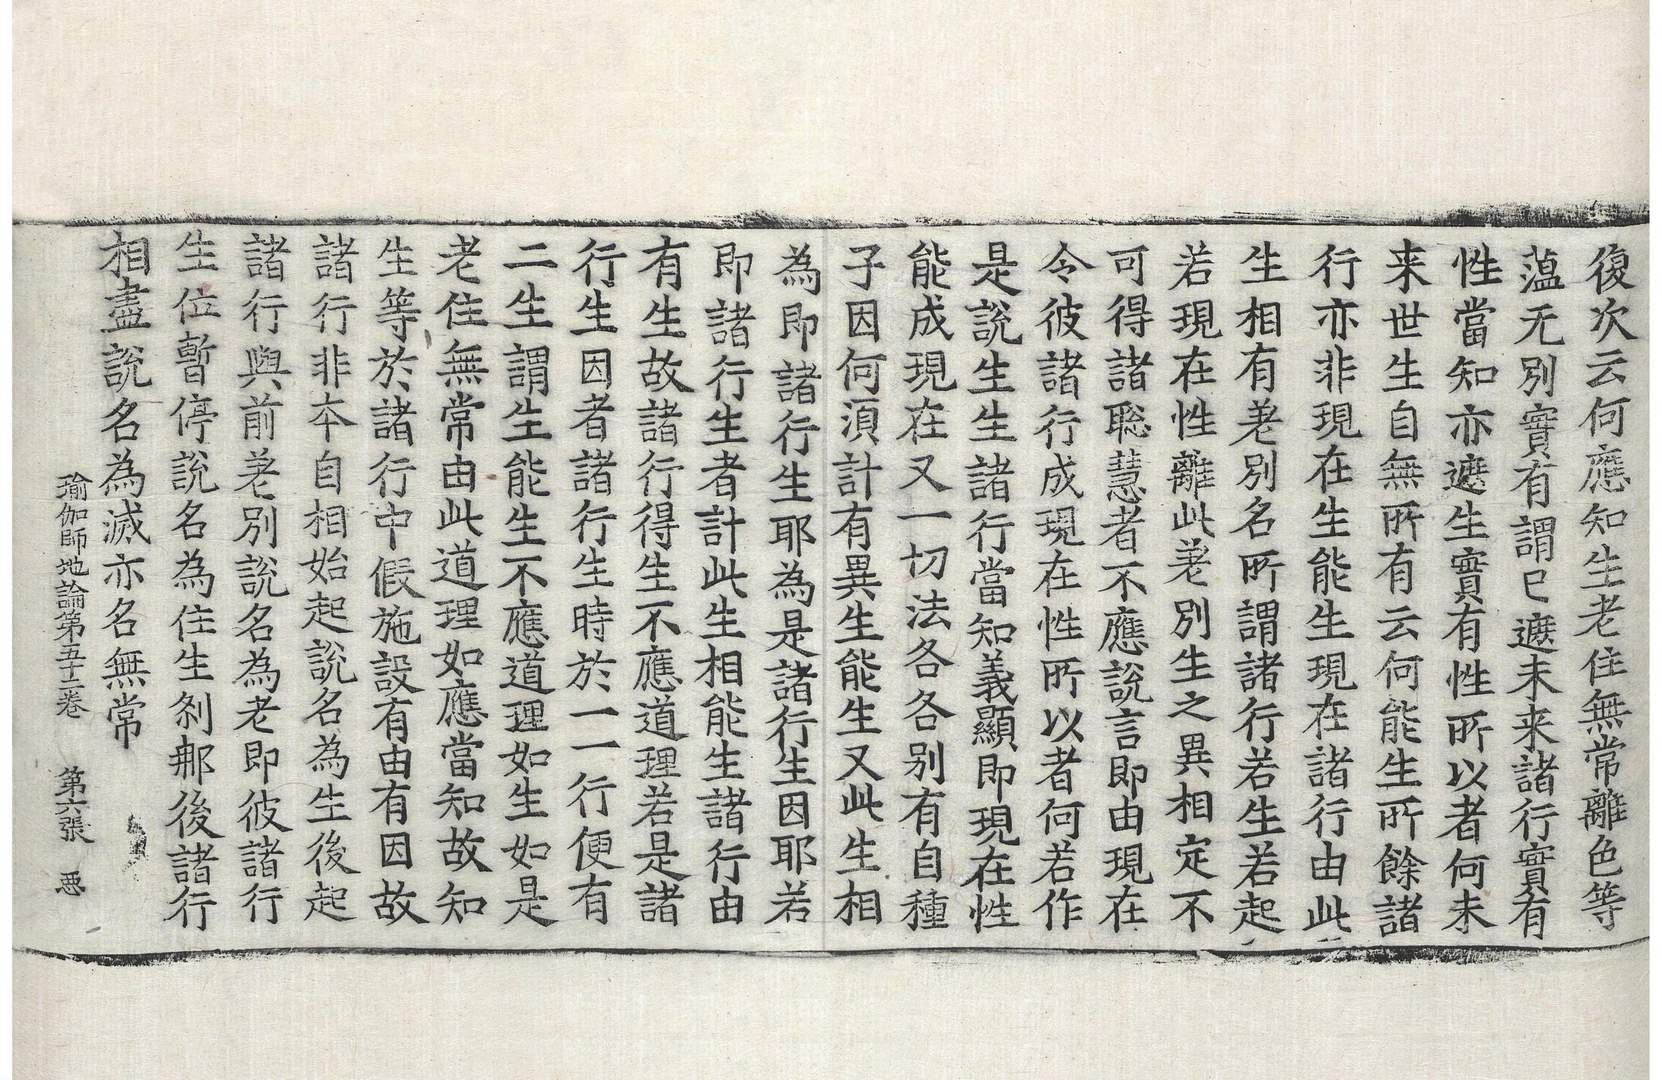 復次云何應知生老住無常離色等
薀无別實有謂已遮未来諸行實有
性當知亦遮生實有性所以者何未
来世生自無所有云何能生所餘諸
行亦非現在生能生現在諸行由此
生相有差別名所謂諸行若生若起
若現在性離此差別生之異相定不
可得諸聡慧者不應說言即由現在
令彼諸行成現在性所以者何若作
是說生生諸行當知義顯即現在性
能成現在又一切法各各别有自種
子因何須計有異生能生又此生相
為即諸行生耶為是諸行生因耶若
即諸行生者計此生相能生諸行由
有生故諸行得生不應道理若是諸
行生因者諸行生時於一一行便有
二生謂生能生不應道理如生如是
老住無常由此道理如應當知故知
生等於諸行中假施設有由有因故
諸行非夲自相始起說名為生後起
諸行與前差別說名為老即彼諸行
生位暫停說名為住生刹那後諸行
相盡說名為滅亦名無常
瑜伽師地論第五十二卷 第六張 惡